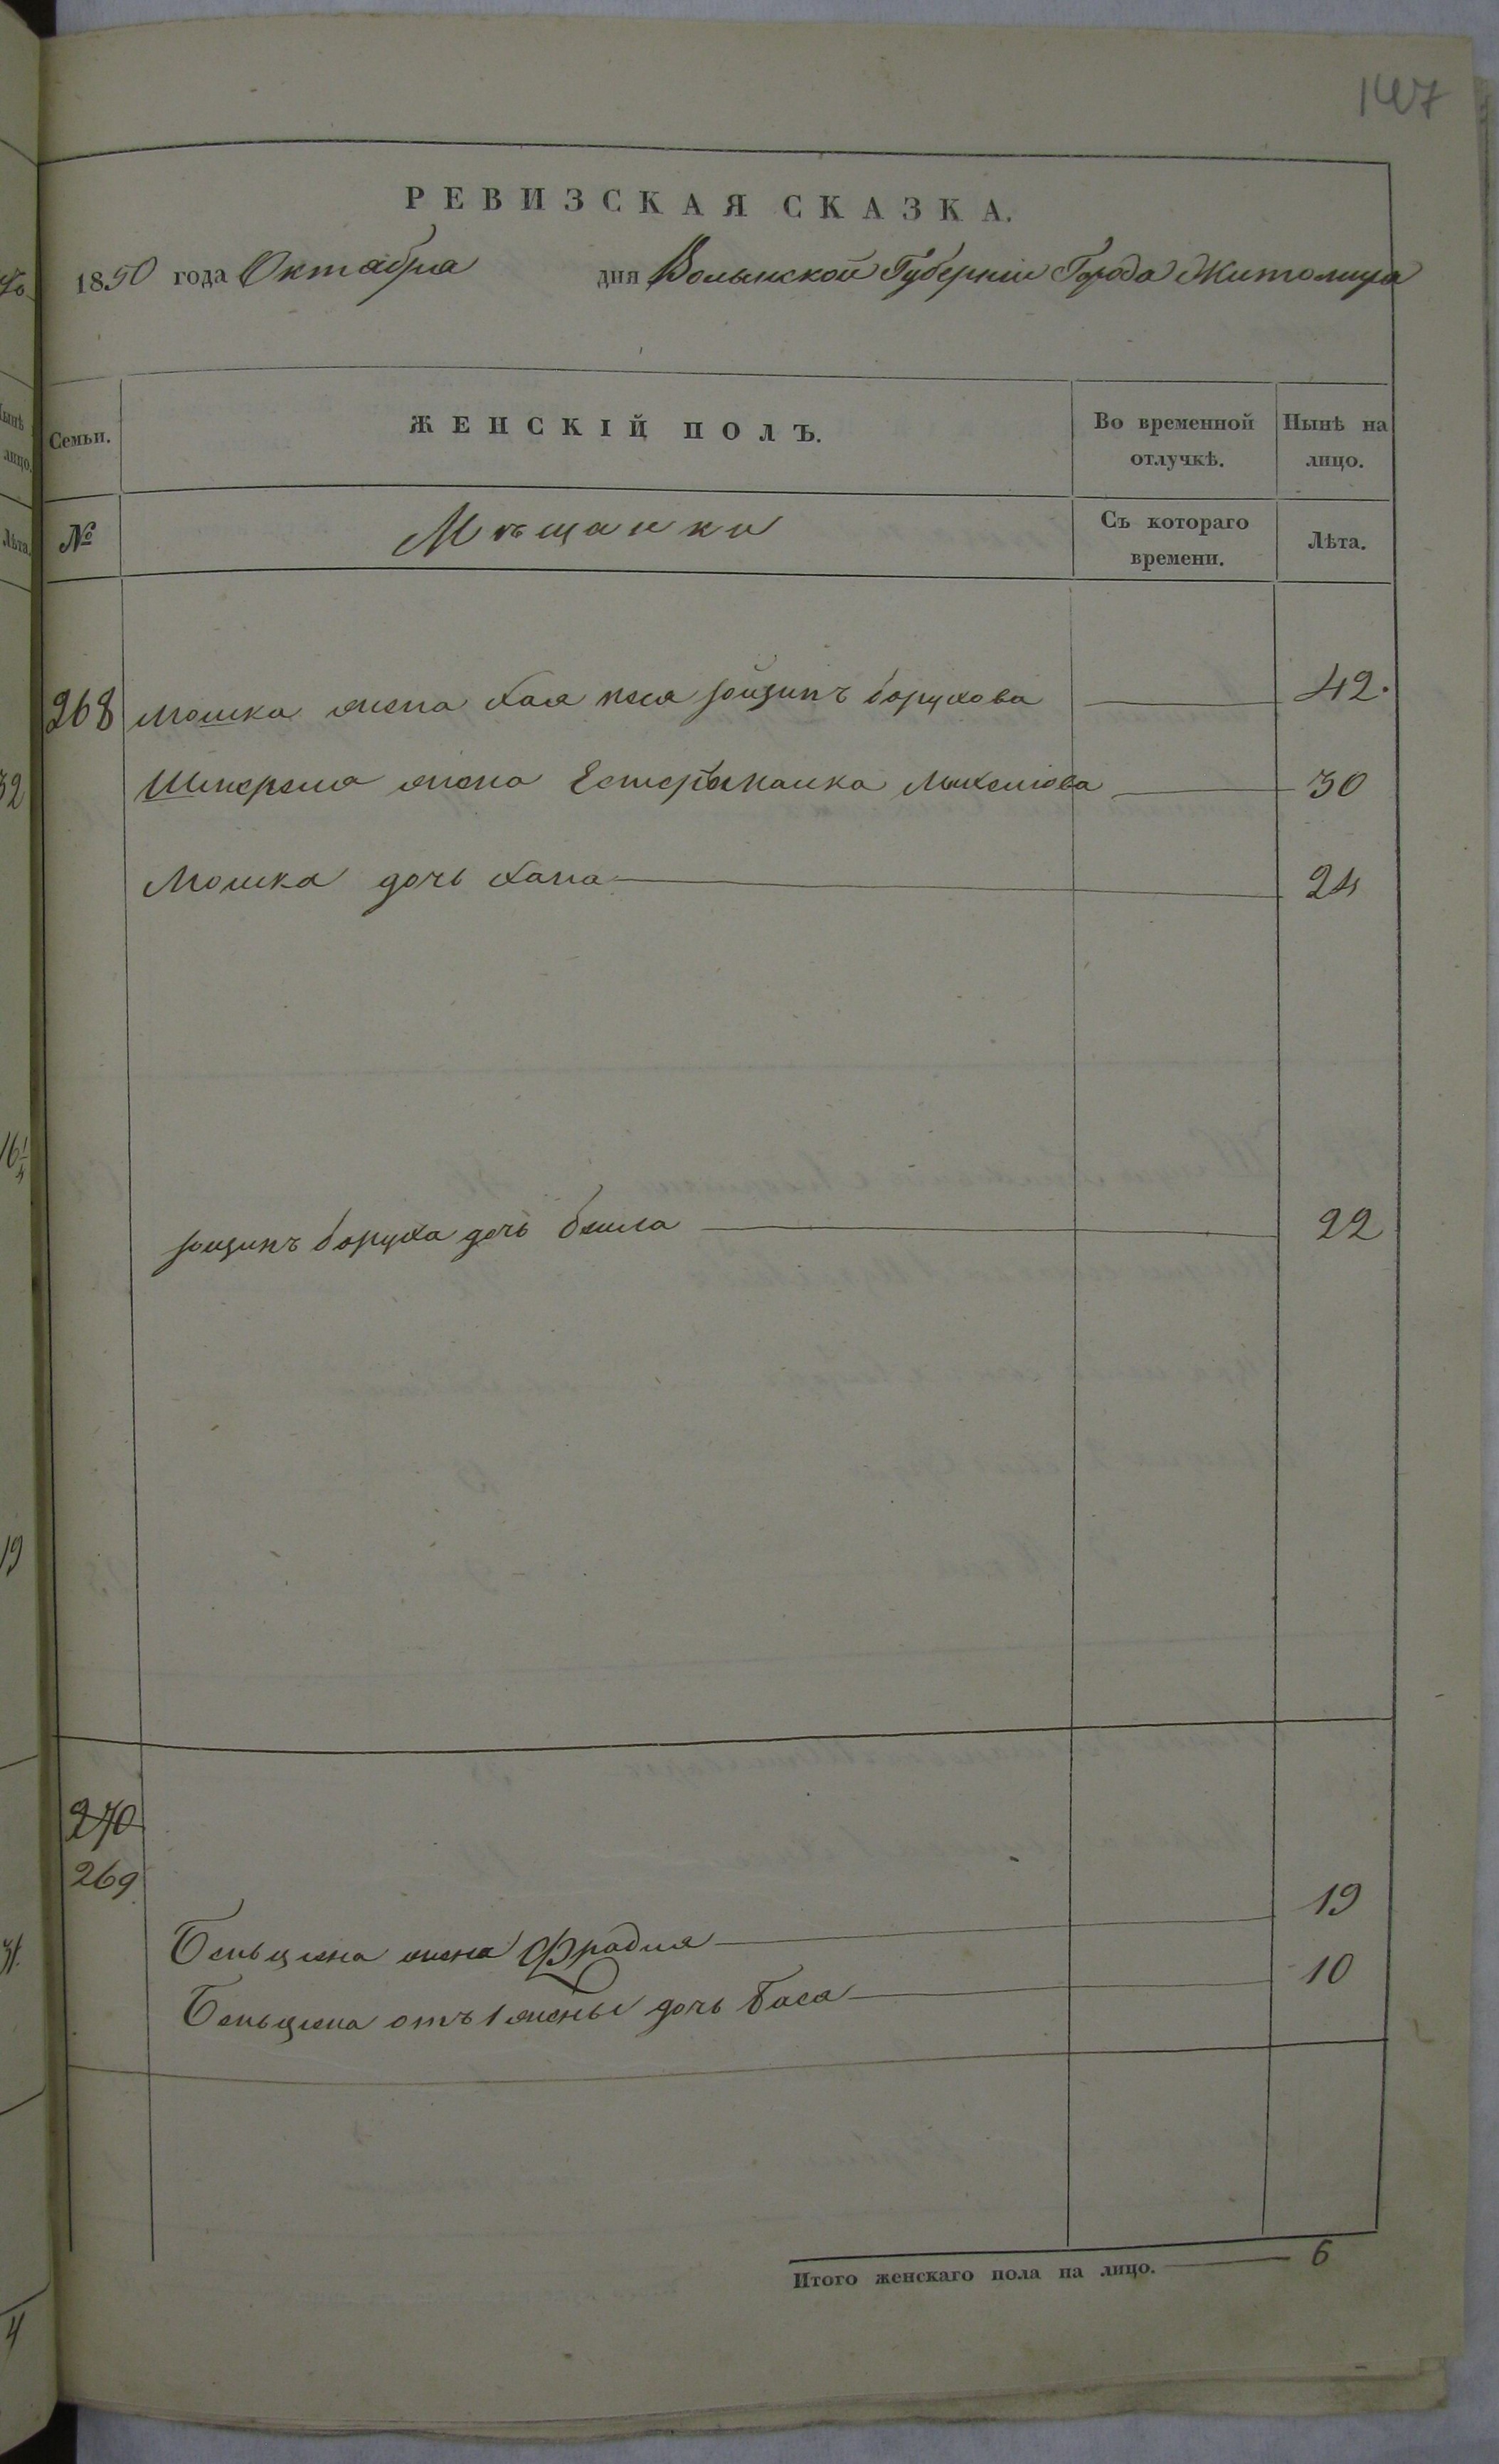 147
РЕВИЗСКАЯ СКАЗКА.
1850 года Октября дня Волынской Губернии Города Житомира
Семьи. ЖЕНСКІЙ ПОЛЪ. Во временной отлучкѣ. Нынѣ на лицо.
№ Мѣщанки Съ котораго времени. Лѣта.
268 Мошка жена Хая песя Іоицикъ борухова 42.
Шмерела жена Естеръ Михелиова 30
Мошка дочь Хана 24
Іоицикъ боруха дочь бейла 22
270
269
Беньциона жена Фрадля 19
Беньциона отъ 1 жены дочь Бася 10
Итого женскаго пола на лицо. 6